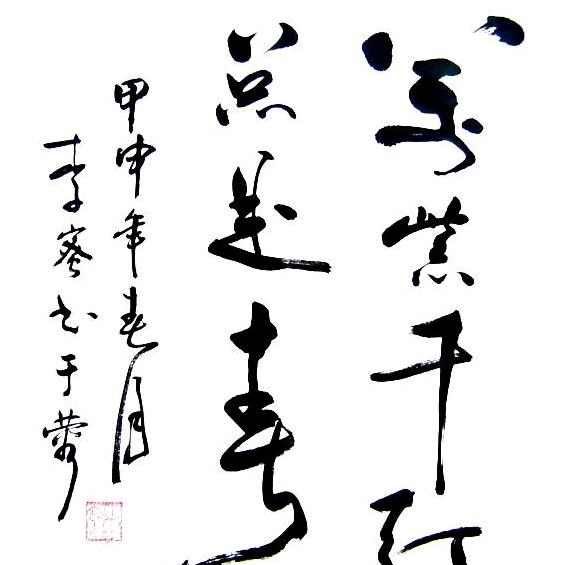 萬紫千红
总是春
甲申年春月
李蜜书于蓉